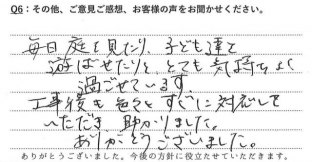 Q6：その他、ご意見ご感想、お客様の声をお聞かせください。
毎日庭を見たり、子ども達を
遊ばせたりと、とても気持ちよく
過ごせています。
工事後も色々とすぐに対応して
いただき助かりました。
ありがとうございました。
ありがとうございました。今後の方針に役立たせていただきます。